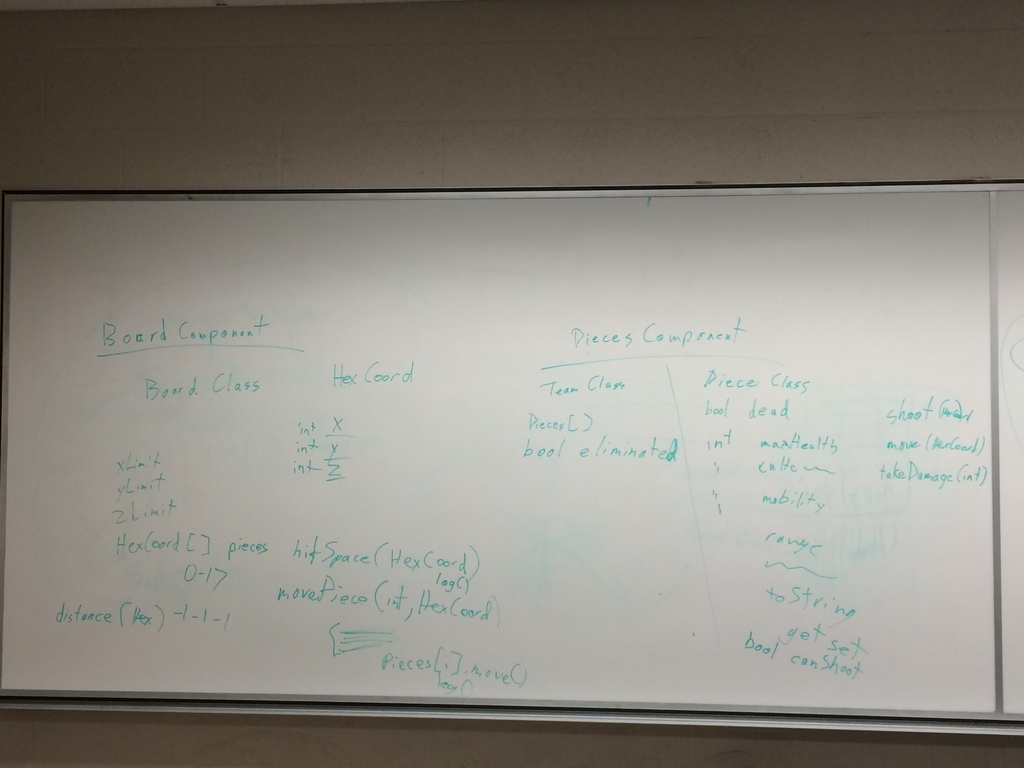 Board Component
Board Class
HexCoord
int X
int Y
int Z
xLimit
yLimit
zLimit
HexCoord[] pieces
0-17
distance(Hex) -1-1-1
hitSpace(HexCoord)
log()
movePiece(int, HexCoord)
pieces[i].move()
log()
Pieces Component
Team Class
Pieces[]
bool eliminated
Piece Class
bool dead
int maxHealth
"
" mobility
range
toString
get set
bool canShoot
shoot(
move(HexCoord)
takeDamage(int)